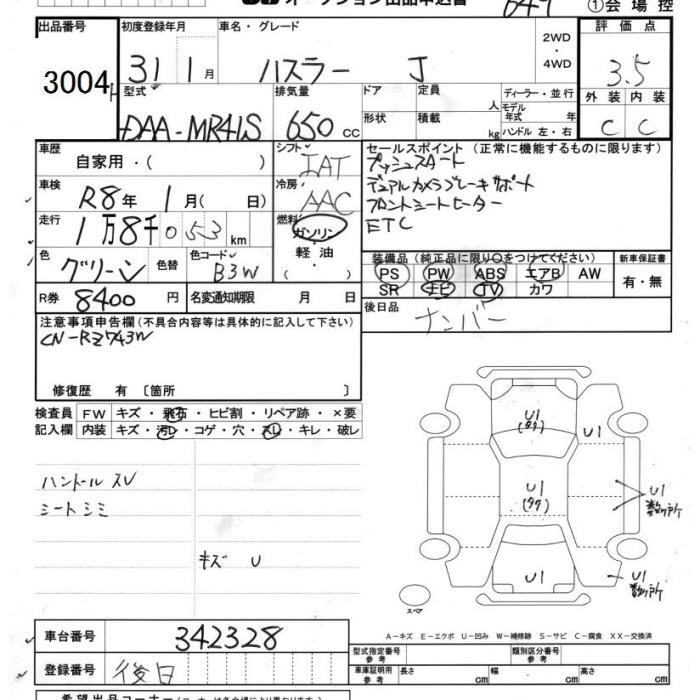 オークション出品申込書 ①会場控
出品番号 初度登録年月 車名・グレード 2WD・4WD 評価点
3004 31 1月 ハスラー J 3.5
型式 排気量 ドア 形状 定員 人 積載 kg ディーラー・並行 モデル年式 年 ハンドル 左・右 外装 内装
DAA-MR41S 650 cc C C
車歴 自家用・( ) シフト IAT セールスポイント (正常に機能するものに限ります)
プッシュスタート
車検 R8年 1月( 日) 冷房 AAC デュアルカメラブレーキサポート
フロントシートヒーター
走行 1万8千053km 燃料 ガソリン・軽油・( ) ETC
色 グリーン 色替 色コード B3W 装備品 (純正品に限り○をつけてください) 新車保証書
PS PW ABS エアB AW 有・無
SR ナビ TV カワ
R券 8400円 名変通知期限 月 日 後日品 ナンバー
注意事項申告欄 (不具合内容等は具体的に記入して下さい)
CN-RZ743W
修復歴 有 〔箇所 〕
検査員記入欄 FW キズ・飛石・ヒビ割・リペア跡・×要
内装 キズ・汚レ・コゲ・穴・スレ・キレ・破レ
ハンドル スレ
シート シミ
キズ U
U1
U1
U1
U1 数ヶ所
U1
U1 数ヶ所
スペア
A-キズ E-エクボ U-凹み W-補修跡 S-サビ C-腐食 XX-交換済
車台番号 342328 型式指定番号 参考 類別区分番号 参考
登録番号 後日 車庫証明用 参考 長さ cm 幅 cm 高さ cm
希望出品コーナー